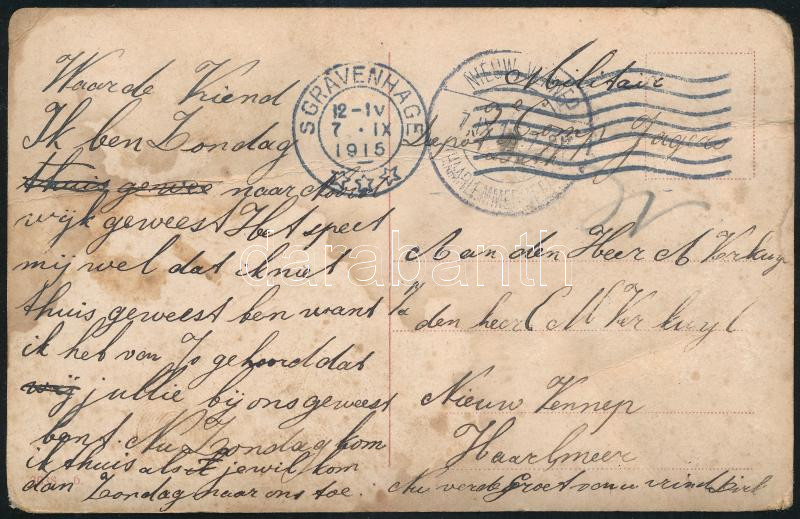 Waarde Vriend
Ik ben Zondag
thuis gewee naar Noord
wijk geweest Het speet
mij wel dat ik niet
thuis geweest ben want
ik heb van Jo gehoord dat
wij jullie bij ons geweest
bent. Nu Zondag kom
ik thuis als je wil kom
dan Zondag naar ons toe.
S GRAVENHAGE
12-IV
7 . IX
1915
NIEUW-VENNEP
(HAARLEMMERMEER)
Militair
2e Comp Jagers
Depot
Aan den Heer A Verkuyl
den heer C M Verkuyl
Nieuw Vennep
Haarlmeer
Nu verde Groet van u vriend
darabanth